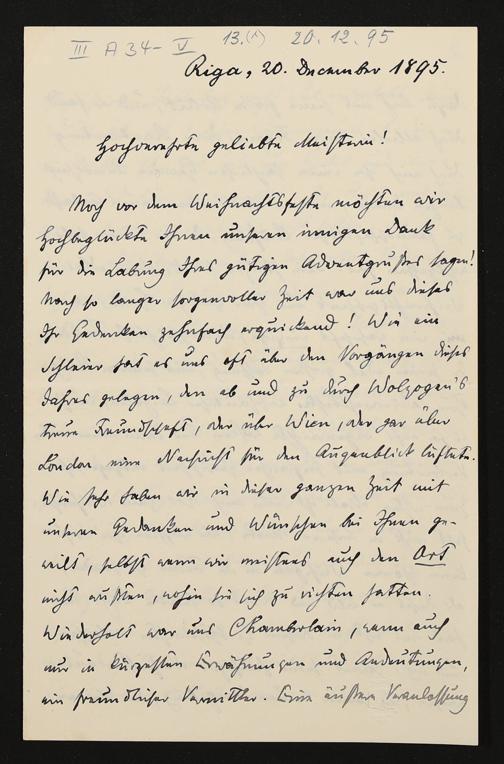 III A 34 - V 13.(x) 20.12.95
Riga, 20. December 1895.
Hochverehrte geliebte Meisterin!
Noch vor dem Weihnachtsfeste möchten wir
Hochbeglückte Ihnen unseren innigen Dank
für die Labung Ihres gütigen Adventgrußes sagen!
Nach so langer sorgenvoller Zeit war uns dieses
Ihr Gedenken zehnfach erquickend! Wie ein
Schleier hat es uns oft über den Vorgängen dieses
Jahres gelegen, den ab und zu durch Wolzogen's
treue Freundschaft, oder über Wien, oder gar über
London eine Nachricht für den Augenblick lüftete.
Wie sehr haben wir in dieser ganzen Zeit mit
unseren Gedanken und Wünschen bei Ihnen ge-
weilt, selbst wenn wir meistens auch den Ort
nicht wußten, wohin sie sich zu richten hatten.
Wiederholt war uns Chamberlain, wenn auch
nur in kürzesten Erwähnungen und Andeutungen,
ein freundlicher Vermittler. Eine äußere Veranlassung